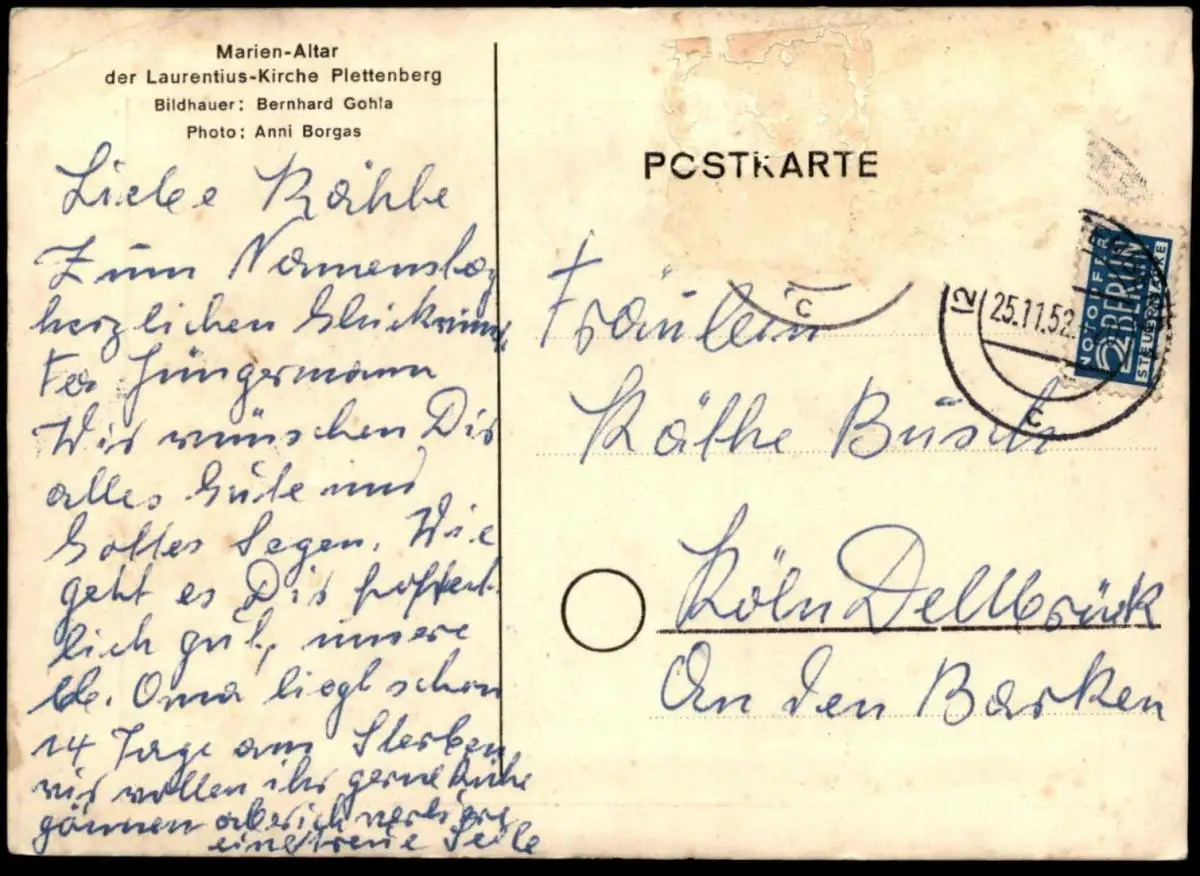 Marien-Altar
der Laurentius-Kirche Plettenberg
Bildhauer: Bernhard Gohla
Photo: Anni Borgas
Liebe Käthe
Zum Namenstag
herzlichen Glückwunsch
Fa Jüngermann
Wir wünschen Dir
alles Gute und
Gottes Segen. Wie
geht es Dir hoffent-
lich gut, unsere
lb. Oma liegt schon
14 Tage am Sterben,
wir wollen ihr gerne Ruhe
gönnen aber ich verliere
eine treue Seele
POSTKARTE
NOTOPFER
2 BERLIN
STEUERMARKE
25.11.52
c
c
Fräulein
Käthe Büsch
Köln Dellbrück
An den Barken